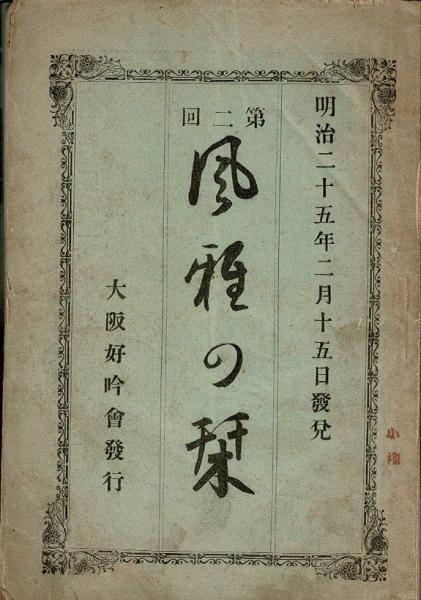 明治二十五年二月十五日發兌
第二回
風雅の栞
大阪好吟會發行